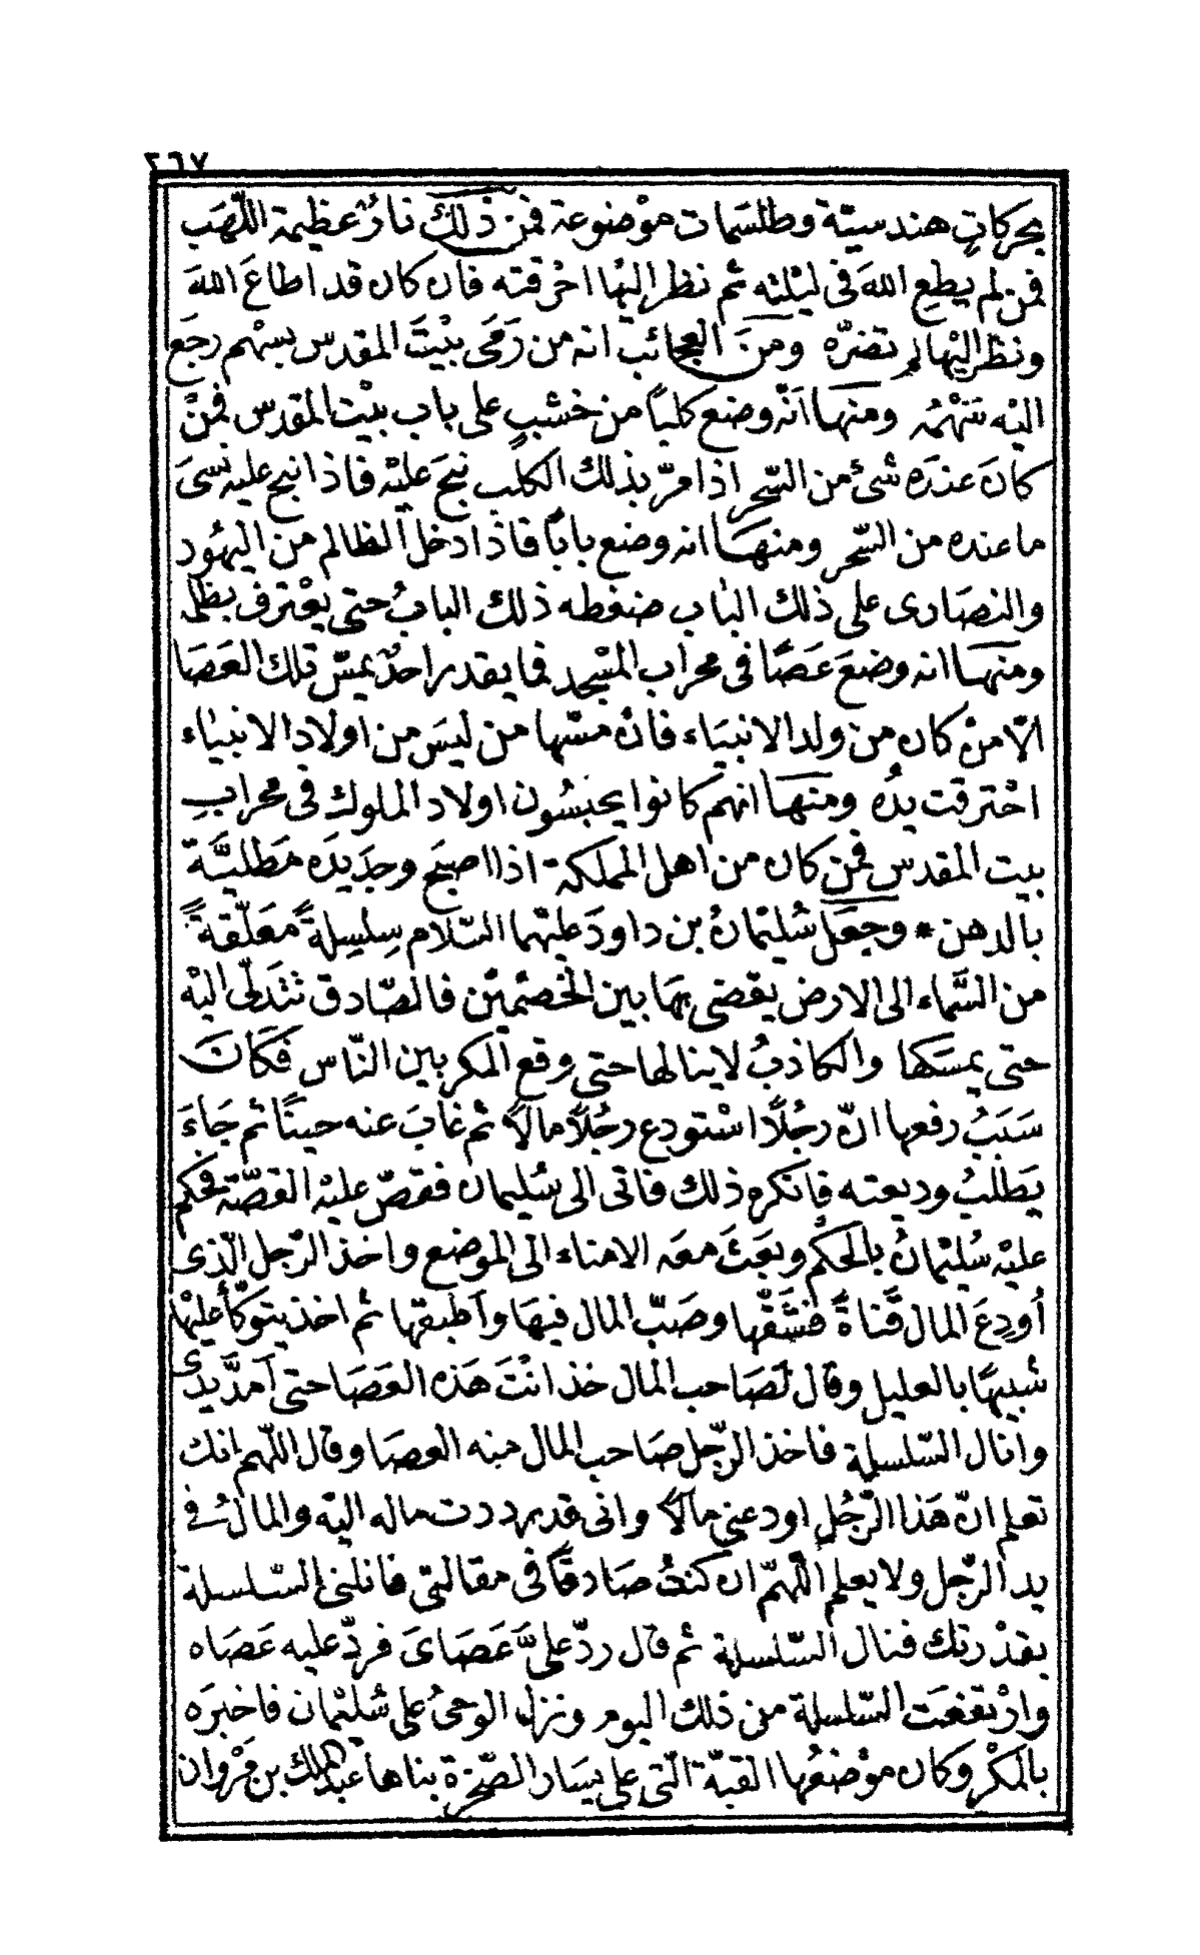 ٢٦٧
بحركاتٍ هندسيّة وطلسمات موْضوعة فمن ذلك نارٌ عظيمة اللّهَب
فمن لم يطعِ اللهَ فى ليْلته ثم نظر اليْها احْرقته فان كان قد اطاعَ اللهَ
ونظر اليْها لم تضرّه ومنَ العجائب انه من رَمَى بيْتَ المقدس بسهْم رجَع
اليْه سَهْمُه ومنها انّه وضع كلباً من خشب على باب بيْت المقدس فمنْ
كانَ عندَه شئ من السّحر اذا مرّ بذلك الكلب نبحَ عليْه فاذا نبح عليه نسىَ
ما عنده من السّحر ومنها انه وضع باباً فاذا دخل الظالم من اليهُود
والنصَارى على ذلك الباب ضغطه ذلك البابُ حتى يعْترف بظلمه
ومنها انه وضعَ عَصًا فى محراب المسْجد فما يقدر احدٌ يمسّ تلك العَصَا
الّا منْ كان من ولد الانبيَاء فانْ مسّها من ليسَ من اولاد الانبياء
احْترقت يدُه ومنها انهم كانوا يحبسُون اولاد الملوك فى محراب
بيت المقدس فمن كان من اهل المملكة اذا اصبح وجدَ يدَه مَطليَّة
بالدهن * وجعَل سُليْمانُ بن داودَ عليْهما السّلام سِلسِلةً مُعَلّقةً
من السَّماء الى الارض يقضى بهَا بين الخصْميْن فالصّادق تتَدلّى اليْه
حتى يمسَكها والكاذبُ لا ينالها حتى وقع المكر بين النّاس فكَانَ
سَبَبُ رفعها انّ رجُلًا اسْتودع رجُلًا مالًا ثم غابَ عنه حينًا ثم جَاءَ
يَطلبُ وديعته فانكره ذلك فاتى الى سُليمان فقصّ عليْه القصّة فحكم
عليْه سُليْمانُ بالحكْم وبعَثَ معَه الامناء الى الموضع واخذ الرّجل الّذى
أُودِعَ المال قَناةً فشَقّها وصَبّ المال فيهَا وَاَطبقها ثم اخذ يتوكّأ عليْها
شبيهًا بالعليل وقال لصَاحب المال خذ انْتَ هَذه العَصَا حتى اَمدَّ يدى
وانال السّلسلة فاخذ الرّجل صَاحب المال منه العصَا وقال اللّهم انك
تعلم انّ هَذا الرّجُل اودعنى مالًا وانى قد رددت ماله اليْه والمالُ فى
يد الرّجل ولا يعلم اللّهمّ ان كنتُ صَادقًا فى مقالتى فانلنى السّلسلة
بقدْرتك فنال السّلسلة ثم قال ردّ علىَّ عَصَاىَ فردّ عليه عَصَاه
وارْتفعَت السّلسلة من ذلك اليوم ونزل الوحىُ على سُليْمان فاخبرَه
بالمكْر وكان موْضعُها القبّة الّتى على يسَار الصّخرة بناها عبد الملك بن مَرْوان